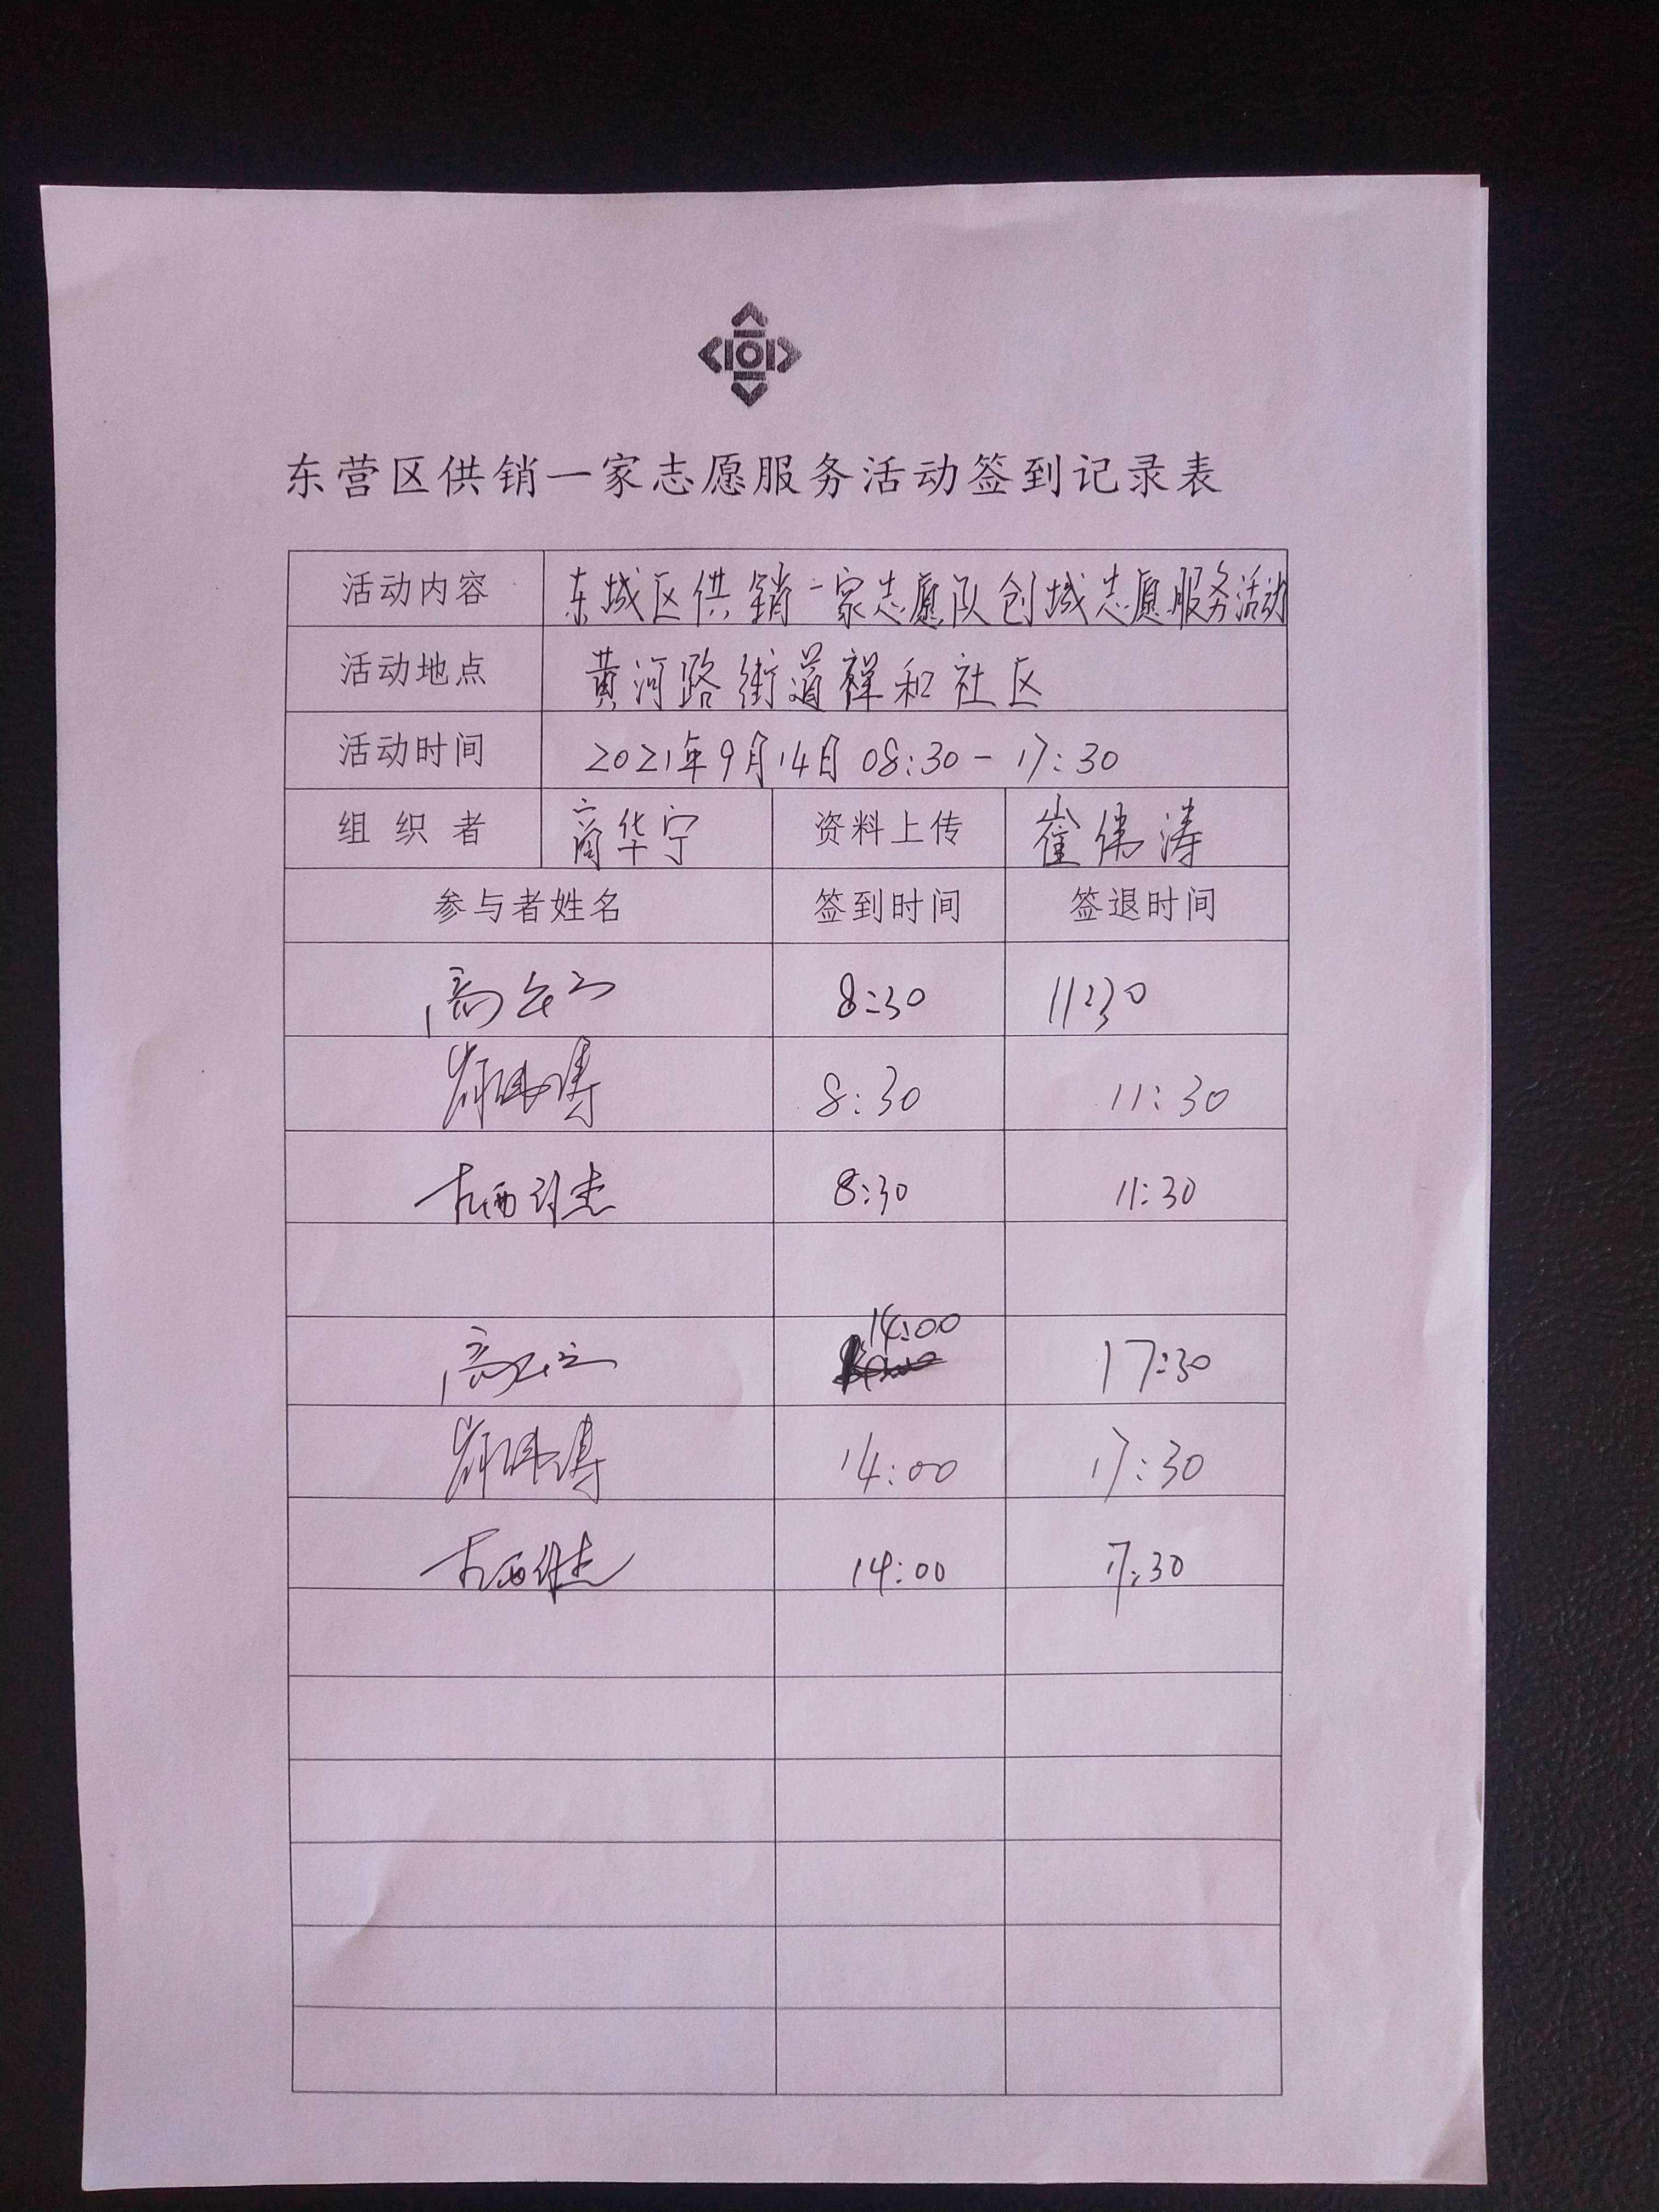 东营区供销一家志愿服务活动签到记录表
活动内容 东城区供销一家志愿队创城志愿服务活动
活动地点 黄河路街道祥和社区
活动时间 2021年9月14日 08:30-17:30
组织者 商华宁 资料上传 崔伟涛
参与者姓名 签到时间 签退时间
8:30 11:30
崔伟涛 8:30 11:30
8:30 11:30
14:00 17:30
崔伟涛 14:00 17:30
14:00 17:30